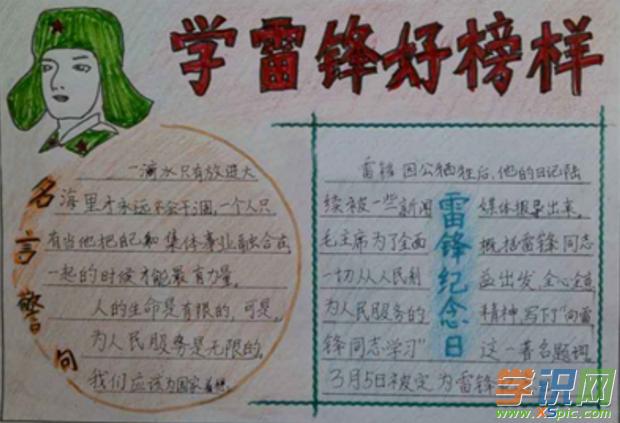 学雷锋好榜样
名言警句
一滴水只有放进大
海里才永远不会干涸,一个人只
有当他把自己和集体事业融合在
一起的时候才能最有力量。
人的生命是有限的,可是,
为人民服务是无限的,
我们应该为国家
雷锋纪念日
雷锋因公牺牲后,他的日记陆
续被一些新闻媒体报导出来。
毛主席为了全面概括雷锋同志
一切从人民利益出发,全心全意
为人民服务的精神,写下了“向雷
锋同志学习”这一著名题词
3月5日被定为雷锋
学识网
www.xspic.com